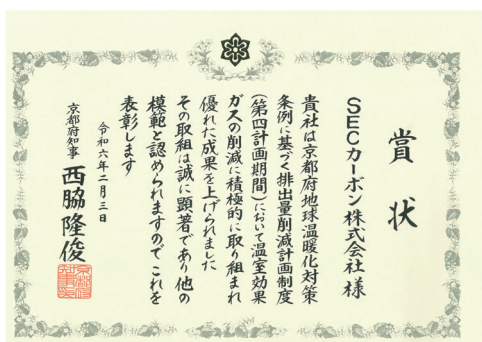 賞状
SECカーボン株式会社 様
貴社は京都府地球温暖化対策
条例に基づく排出量削減計画制度
(第四計画期間)において温室効果
ガスの削減に積極的に取り組まれ
優れた成果を上げられました
その取組は誠に顕著であり他の
模範と認められますので これを
表彰します
令和六年二月三日
京都府知事 西脇隆俊